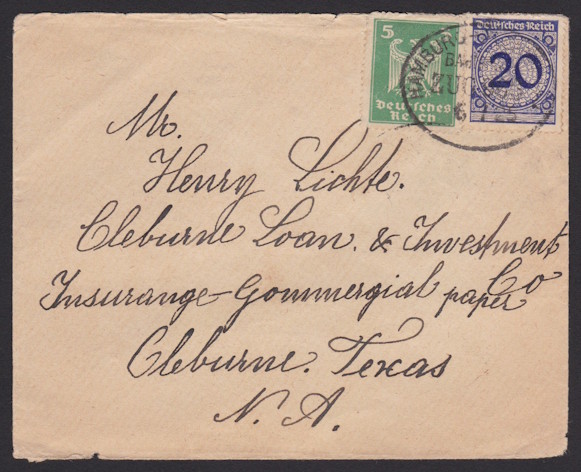 5
Deutsches
Reich
Deutsches Reich
20
HAMBURG
ZUG
Mr.
Henry Lichte.
Cleburne Loan. & Investment
Co
Insurange-Gommergial paper
Cleburne. Texas
N. A.